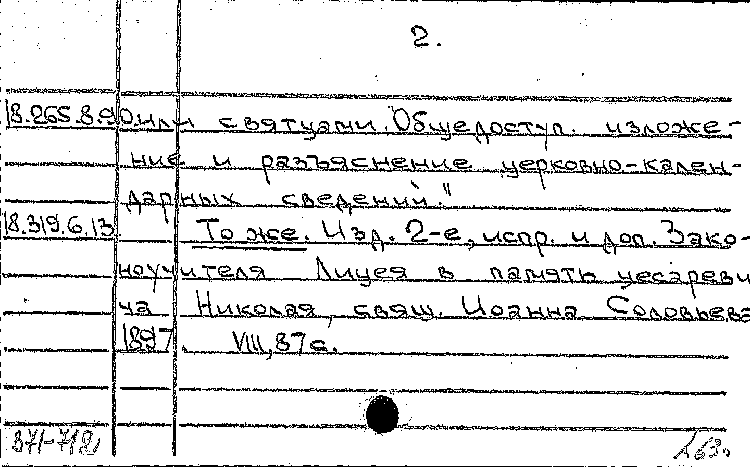 2.
18.265.8.90 или святцами. Общедоступ. изложе-
ние и разъяснение церковно-кален-
дарных сведений."
18.319.6.13 То же. Изд. 2-е, испр. и доп. Зако-
ноучителя Лицея в память цесареви
ча Николая, свящ. Иоанна Соловьева
1897. VIII, 87 с.